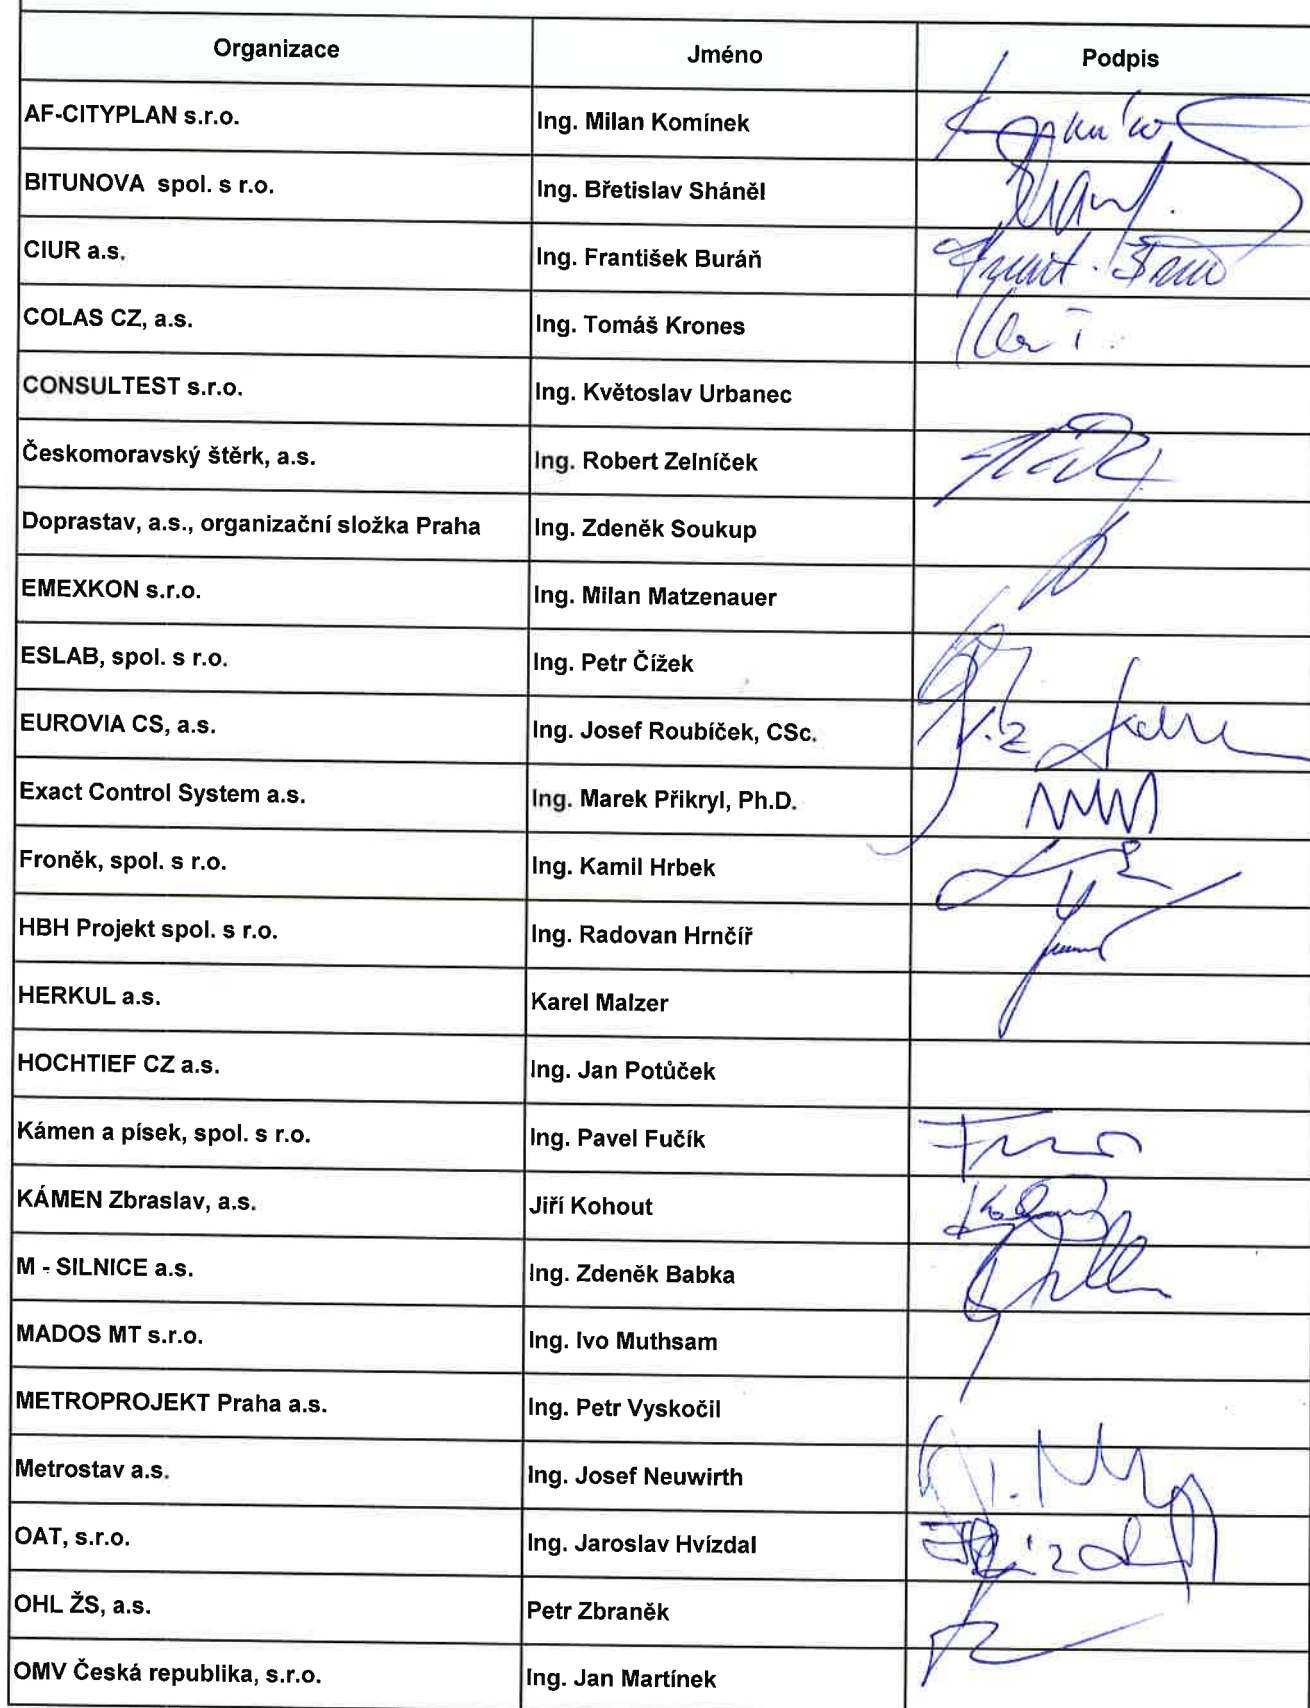 Organizace Jméno Podpis
AF-CITYPLAN s.r.o. Ing. Milan Komínek
BITUNOVA spol. s r.o. Ing. Břetislav Sháněl
CIUR a.s. Ing. František Buráň
COLAS CZ, a.s. Ing. Tomáš Krones
CONSULTEST s.r.o. Ing. Květoslav Urbanec
Českomoravský štěrk, a.s. Ing. Robert Zelníček
Doprastav, a.s., organizační složka Praha Ing. Zdeněk Soukup
EMEXKON s.r.o. Ing. Milan Matzenauer
ESLAB, spol. s r.o. Ing. Petr Čížek
EUROVIA CS, a.s. Ing. Josef Roubíček, CSc.
Exact Control System a.s. Ing. Marek Přikryl, Ph.D.
Froněk, spol. s r.o. Ing. Kamil Hrbek
HBH Projekt spol. s r.o. Ing. Radovan Hrnčíř
HERKUL a.s. Karel Malzer
HOCHTIEF CZ a.s. Ing. Jan Potůček
Kámen a písek, spol. s r.o. Ing. Pavel Fučík
KÁMEN Zbraslav, a.s. Jiří Kohout
M - SILNICE a.s. Ing. Zdeněk Babka
MADOS MT s.r.o. Ing. Ivo Muthsam
METROPROJEKT Praha a.s. Ing. Petr Vyskočil
Metrostav a.s. Ing. Josef Neuwirth
OAT, s.r.o. Ing. Jaroslav Hvízdal
OHL ŽS, a.s. Petr Zbraněk
OMV Česká republika, s.r.o. Ing. Jan Martínek